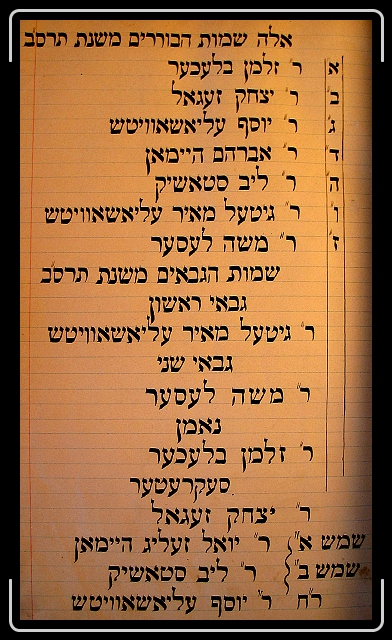 אלה שמות הבוררים משנת תרסב
א ר' זלמן בלעכער
ב' ר' יצחק זעגאל
ג' ר' יוסף עליאשאוויטש
ד' ר' אברהם היימאן
ה' ר' ליב סטאשיק
ו' ר' גיטעל מאיר עליאשאוויטש
ז' ר' משה לעסער
שמות הגבאים משנת תרסב
גבאי ראשון
ר' גיטעל מאיר עליאשאוויטש
גבאי שני
ר' משה לעסער
נאמן
ר' זלמן בלעכער
סעקרעטער
ר' יצחק זעגאל
שמש א' ר' יואל זעליג היימאן
שמש ב' ר' ליב סטאשיק
ר"ח ר' יוסף עליאשאוויטש